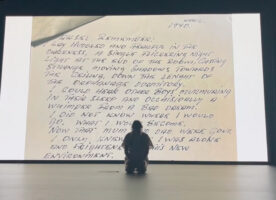 1940.
I LAY HUDDLED AND AFRAID IN THE
DARKNESS. A SINGLE FLICKERING NIGHT
LIGHT AT THE END OF THE ROOM, CASTING
STRANGE MOVING SHADOWS TOWARDS
THE CEILING, DOWN THE LENGHT OF
THE ORPHANAGE DORMITORY.
I COULD HEAR OTHER BOYS MURMURING
IN THEIR SLEEP AND OCCASIONALLY A
WHIMPER FROM A BAD DREAM.
I DID NOT KNOW WHERE I WOULD
GO, WHAT I WOULD BECOME,
NOW THAT MUM AND DAD WERE GONE.
I ONLY KNEW I WAS ALONE
AND FRIGHTENED NEW
ENVIRONMENT.